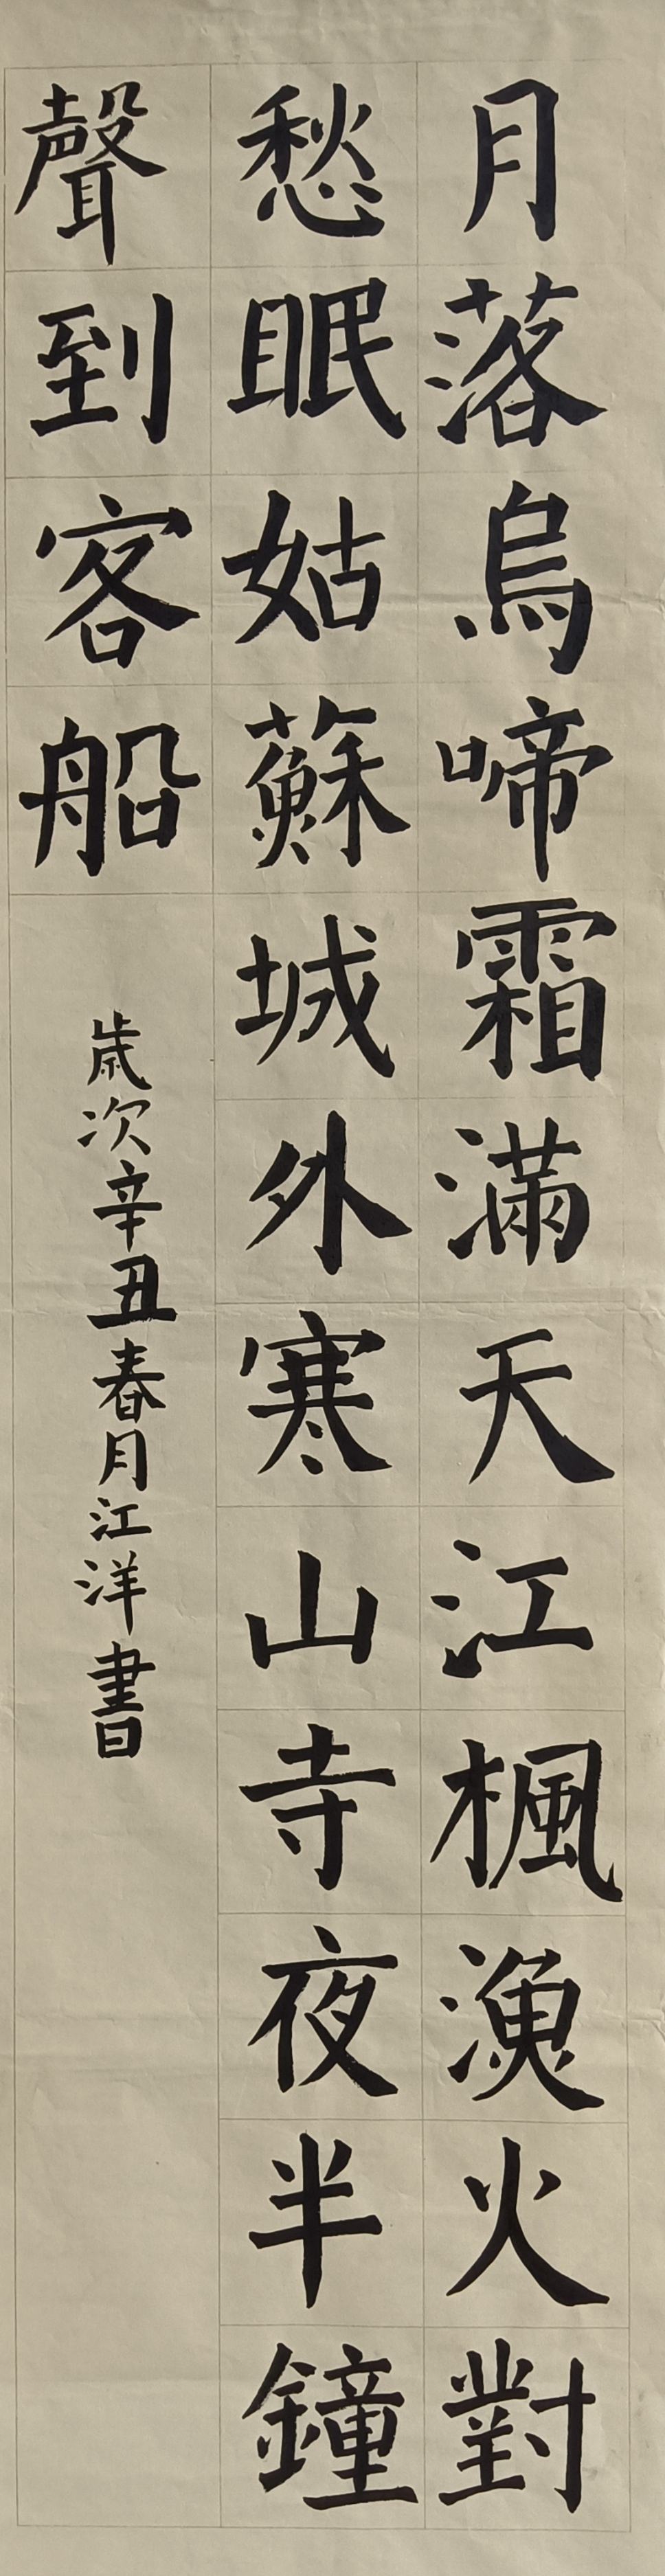 月落烏啼霜滿天江楓漁火對
愁眠姑蘇城外寒山寺夜半鐘
聲到客船
歲次辛丑春月江洋書